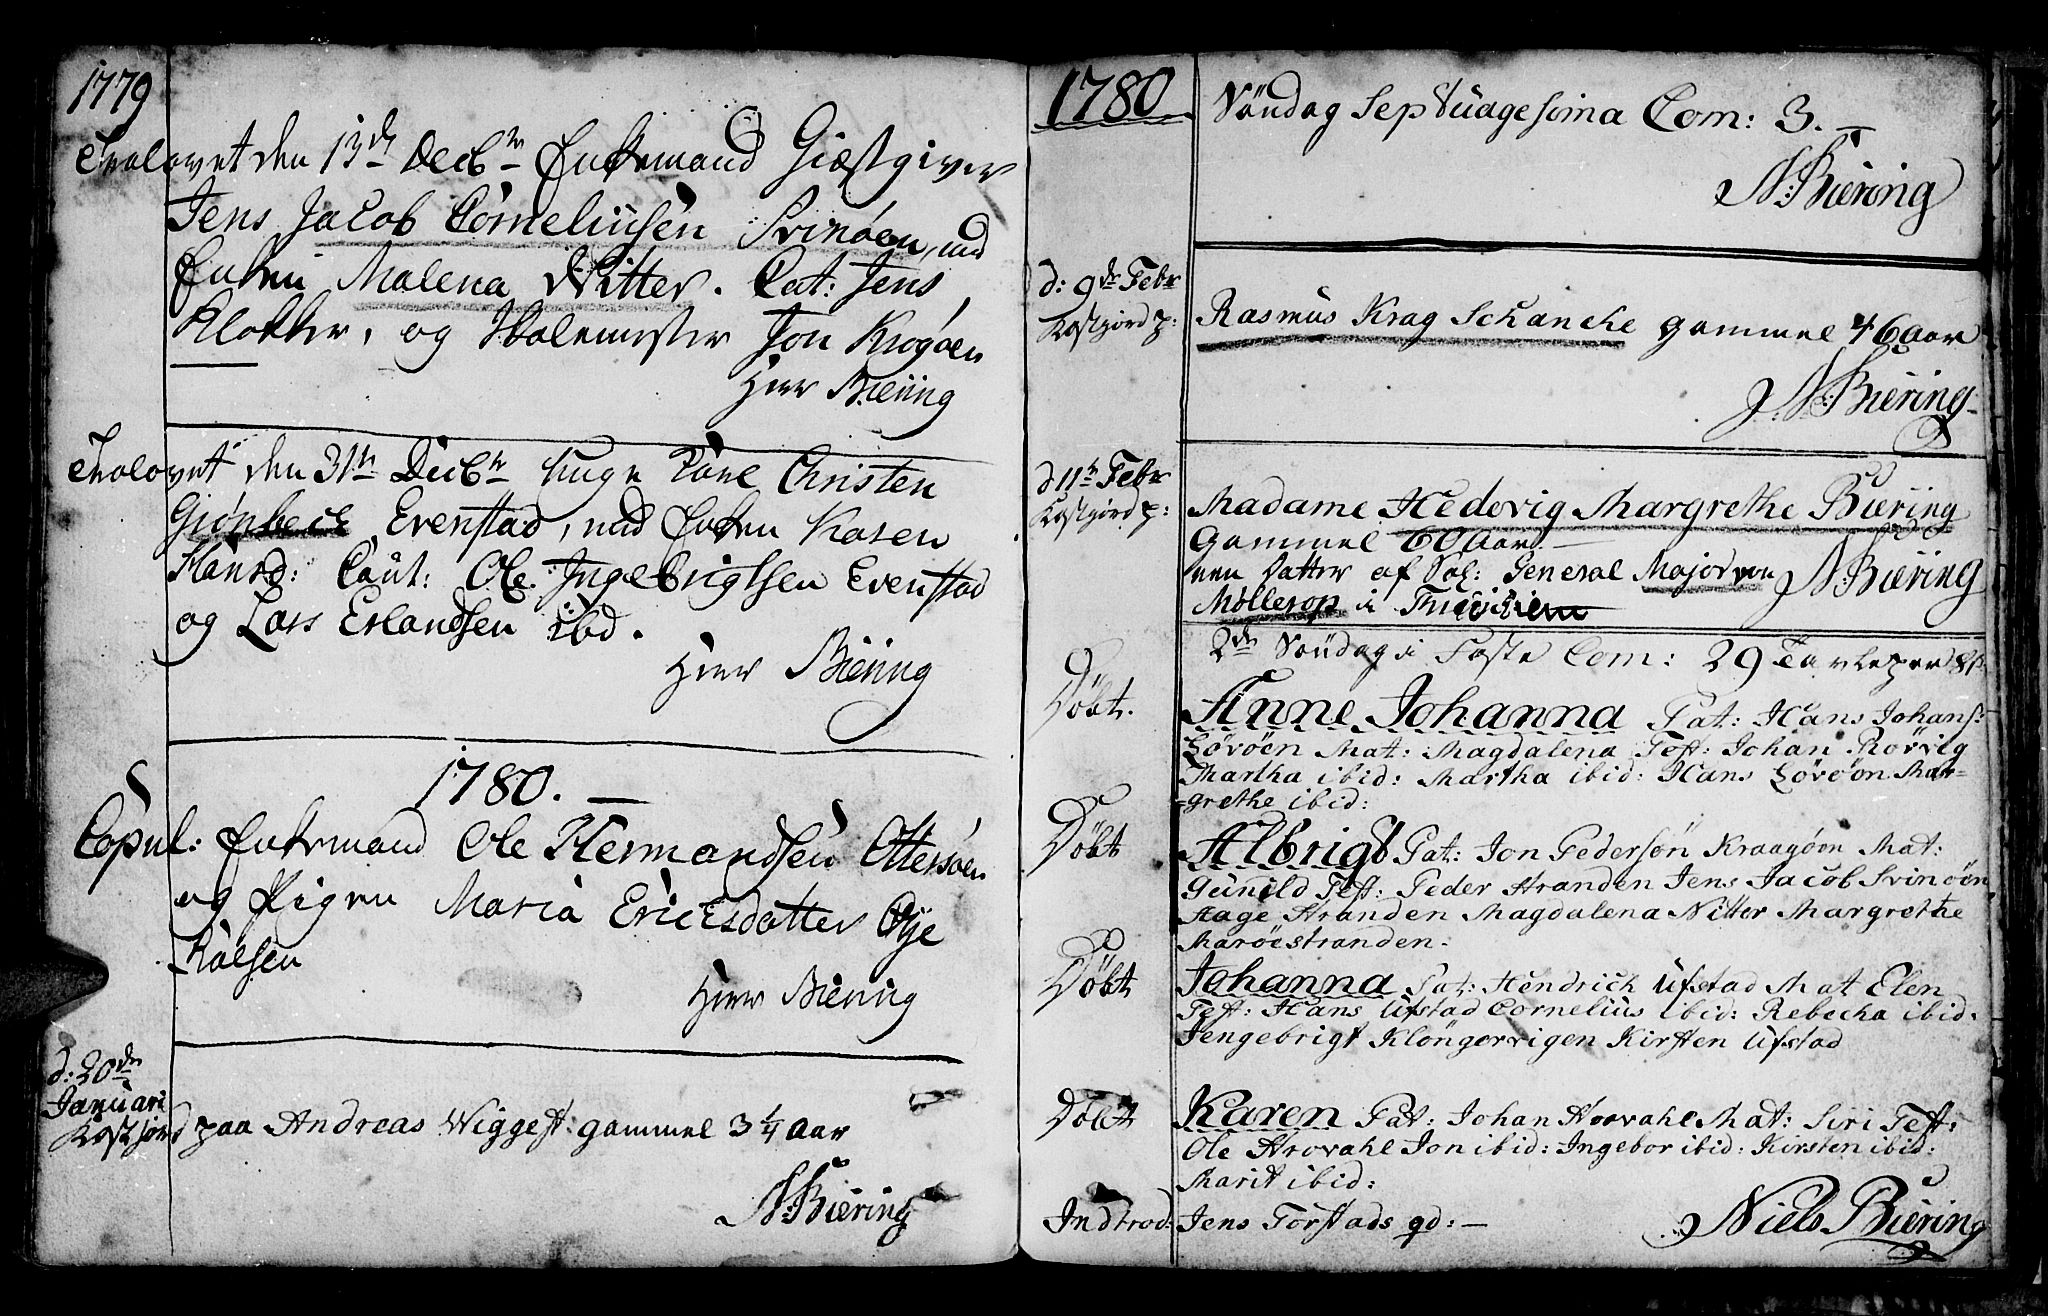 1779
Trolovet den 13de Decbr Enkemand Giæstgiver
Jens Jacob Cørneliusen Svinøen, med
Enken Malena Nitter. Caut: Jens
Klokker, og Skolemester Jon Krogøen
Herr Biering
Trolovet den 31te Decbr unge Karl Christen
Giønbech Evenstad, med Enken Karen
Haurd: Caut: Ole Ingebrigtsen Evenstad
og Lars Erlandsen ibd.
Herr Biering
1780.
Copul: Enkemand Ole Hermandsen Ottersøen
og Pigen Maria Ericksdatter Øye
Kalsen
Herr Biering
d: 20de
Januari
Kastjord paa Andreas Wiggest: gammel 3 1/4 aar
N: Biering
1780
Søndag Septuagesoma Com: 3.
N: Biering
d: 9de Febr
Kastjord p:
Rasmus Krag Schancke gammel 46 aar
N: Biering
d 11te Febr
Kastjord p:
Madame Hedevig Margrethe Biering
Gammel 60 aar
een Datter af Sal: General Major von
Møllerop i Tronhiem
N Biering
2den Søndag i Faste Com: 29
Döbt.
Anne Johanna Pat: Hans Johans:
Sørøen Mat: Magdalena Test: Johan Rørvig
Martha ibid: Martha ibid: Hans Sørøøn Mar-
-grethe ibid:
Döbt
Albrigt Pat: Jon Pedersøn Kraagøen Mat:
Gunild Test: Peder Stranden Jens Jacob Svinøen
Aage Stranden Magdalena Nitter Margrethe
Marøestranden.
Döbt
Johanna Pat: Hendrich Ufstad Mat Elen
Test: Hans Ufstad Cornelius ibid: Rebecka ibid.
Jengebrigt Klöngervigen Kirsten Ufstad
Döbt
Karen Pat: Johan Horvahl Mat: Siri Test:
Ole Arovahl Jon ibid: Ingebor ibid: Kirsten ibid:
Marit ibid:
Indtrod: Jens Torstads qd: —
Niels Biering